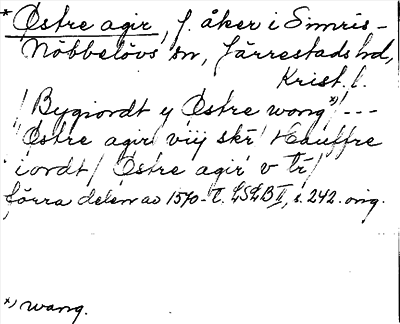 * Östre agir, f. åker i Simris-
Nöbbelövs sn, Järrestads hd,
Krist. l.
/ Bygiordt y Östre wong *) / ---
Östre agir viij skr / Hauffre
iordt / Östre agir v tr /
förra delen av 1570-t. LSLB II, s. 242. orig.
*) wang.